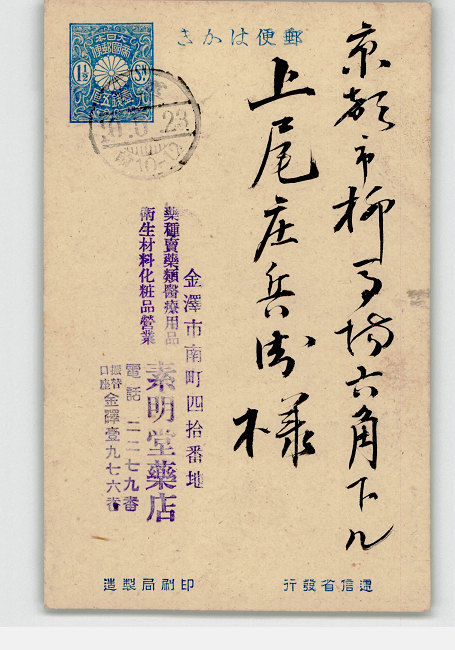 郵便はかき
大日本
帝国郵便
1½ Sn
壹錢五厘
京都市柳馬場六角下ル
上尾庄兵衛様
金澤市南町四拾番地
藥種賣藥類醫療用品
衛生材料化粧品營業
素明堂藥店
電話 二二七九番
振替口座 金澤壹九七六番
逓信省發行
印刷局製造